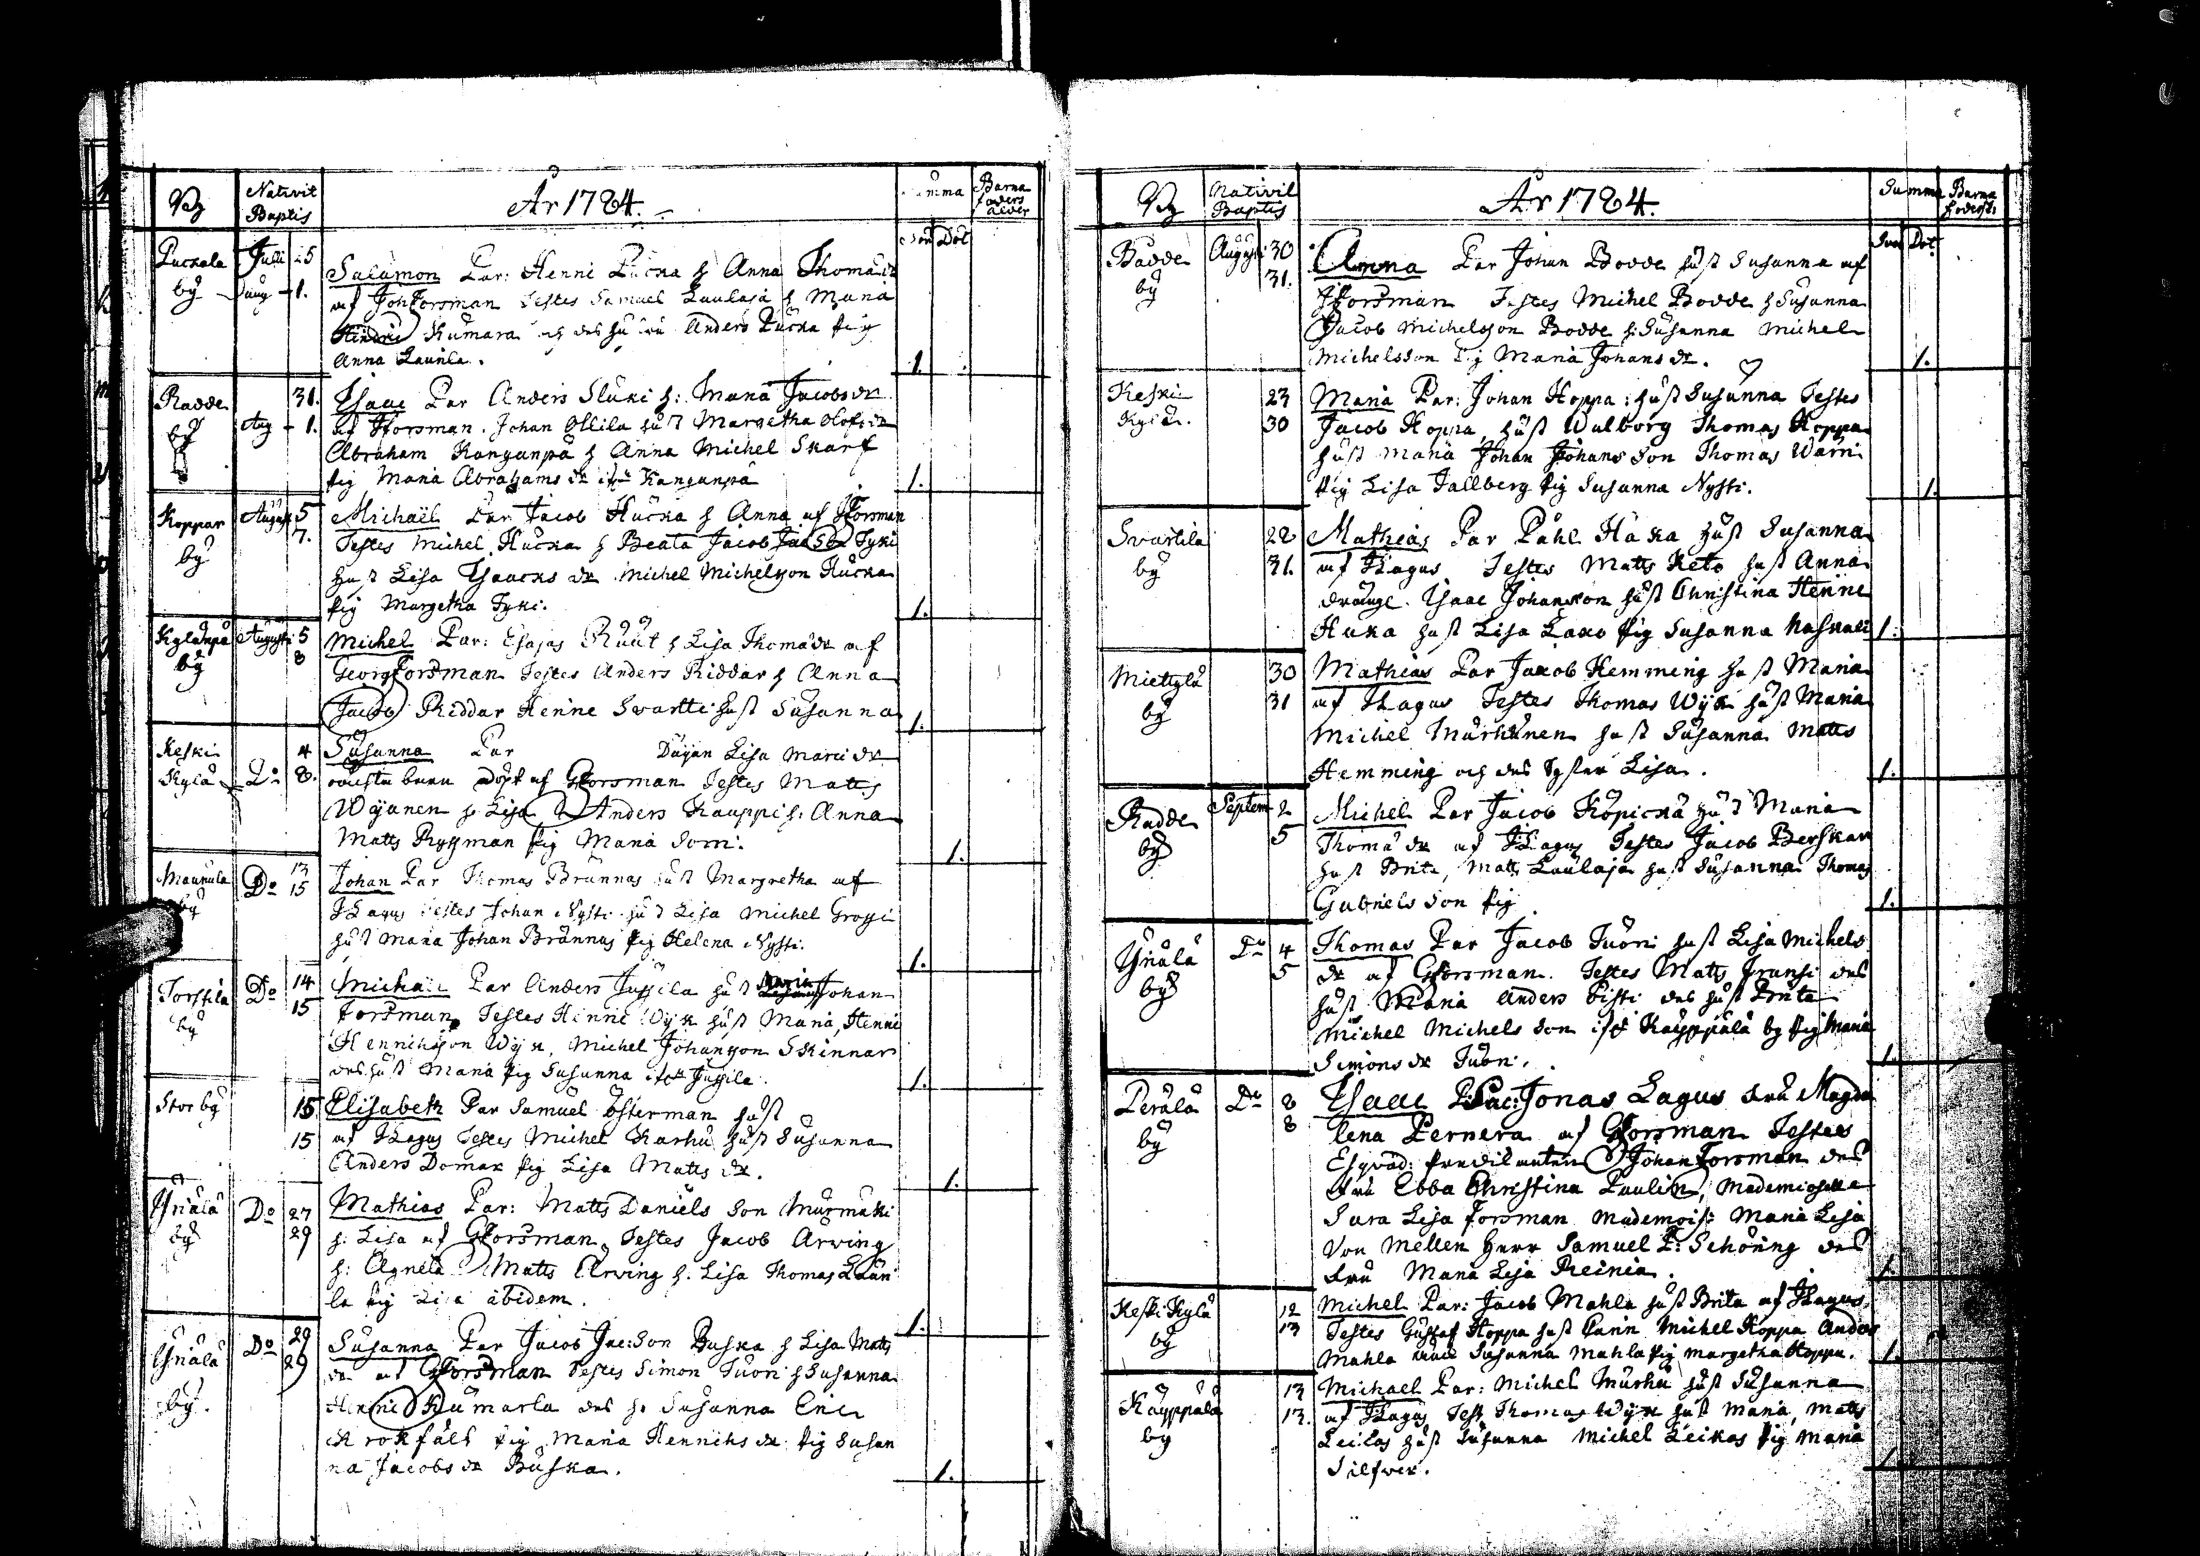 By
Nativit
Baptis
År 1784.
Summa
Barna
faders
ålder
Son Döt
Puckala
by
Juli 25
aug 1.
Salomon Par: Henni Pucka h Anna Thomæ dr
af Joh Forsman Testes Samuel Laulaja h Maria
Kumara och des hustru Anders Pucka pig
Anna Launila.
1
Radde
by
31.
Aug 1.
Isaac Par Anders Sluki h: Maria Jacobs dr
af Forsman. Johan Ollila hust Margetha Olofs dr
Abraham Kanganpä h Anna Michel Skarf
pig Maria Abrahams dr Kanganpä
1.
Koppar
by
August 5
7.
Michaël Par Jacob Hucka h Anna af Forsman
Testes Michel Hucka h Beata Jacob Tyki
hust Lisa Isaacks dr Michel Michelsson Hucka
pig Margetha Tyki.
1.
Kylänpä
by
Augusti 5
8
Michel Par: Esajas Ruut h Lisa Thomæ dr af
Georg Forsman Testes Anders Riddar h Anna
Jacob Riddar Henne Swartti hust Susanna
1.
Keski
Kylä
Do
4
8.
Susanna Par
Lisa Matti dr
oächta barn döpt af GForsman Testes Matts
Wäyänen h Lisa Anders Kauppi h: Anna
Matts Ryssman pig Maria Sorri.
1.
Maunula
by
Do
13
15
Johan Par Thomas Brännas hust Margretha af
ILagus Testes Johan Nysti hust Lisa Michel
hust Maria Johan Brännas pig Helena Nysti.
1.
Torstila
by
Do
14
15
Michaël Par Anders Jussila hust Maria Johan
Forsman Testes Henne Wijk hust Maria, Henne
Henniksson Wijk, Michel Johansson Skinnar
des hust Maria pig Susanna Jussila.
1.
Stor by
15
15
Elisabeth Par Samuel Österman hust
af ILagus Testes Michel Karhu hust Susanna
Anders Domar pig Lisa Matts dr.
1.
Ynälä
by
Do
27
29
Mathias Par: Matts Daniels Son Murmäki
h: Lisa af GForsman. Testes Jacob Arwing
h: Agneta Matts Arwing h. Lisa Thomas Laäni
la pig Lisa ibidem.
1.
Ynälä
by.
Do
29
29
Susanna Par Jacob Jac:Son Buska h Lisa Matts
dr af GForsman Testes Simon Tuori h Susanna
Henne Kumarla des h. Susanna Eric
Krokfält pig Maria Henniks dr pig Susan
na Jacobs dr Buska.
1.
By
Nativit
Baptis
År 1784.
Summa
Barna
Son Döt
Badde
by
August 30
31.
Anna Par Johan Bodde hust Susanna af
Forsman Testes Michel Bodde h Susanna
Jacob Michelsson Bodde h: Susanna Michel
Michelsson pig Maria Johans dr.
1.
Keski
Kylä.
23
30
Maria Par: Johan Hoppa: hust Susanna Testes
Jacob Hoppa hust Walborg Thomas Hoppa
hust Maria Johan Johans Son Thomas Warni
pig Lisa Tallberg pig Susanna Nysti.
1.
Svartila
by
28
31.
Mathias Par Påhl Haka hust Susanna
af ILagus Testes Matts Keto hust Anna
dränge. Isaac Johansson hust Christina Henne
Haka hust Lisa Lako pig Susanna Naskali
1.
Miettylä
by
30
31
Mathias Par Jakob Hemming hust Maria
af ILagus Testes Thomas Wijk hust Maria
Michel Murhunen hust Susanna Matts
Hemming och des Syster Lisa.
1.
Radde
by
Septem 2
5
Michel Par Jacob Köpickä hust Maria
Thomæ dr af ILagus Testes Jacob Berskar
hust Brita, Matts Laulaja hust Susanna Thomas
Gabriels Son pig
1.
Ynälä
by
Do
4
5
Thomas Par Jacob Tuori hust Lisa Michels
dr af GForsman. Testes Matts Fransi des
hust Maria Anders Pisti des hust Brita
Michel Michels Son Käyppälä by pig Maria
Simons dr Tuori.
1.
Perälä
by
Do
8
8
Isaac Par: Jonas Lagus fru Magda
lena Pernera af GForsman Testes
Johan Forsman des
fru Ebba Christina Paulin, Mademoiselle
Sara Lisa Forsman Mademois: Maria Lisa
Von Mellen Herr Samuel F: Schöning des
fru Maria Lisa Reinia.
1.
Keski Kylä
by
12
13
Michel Par: Jacob Mahla hust Brita af ILagus.
Testes Gustaf Hoppa hust Carin Michel Hoppa Anders
Mahla Susanna Mahla pig Margetha Hoppa.
1.
Käyppälä
by
13
13.
Michael Par: Michel Murhu hust Susanna
af ILagus Test Thomas Wijk hust Maria, Matts
Leikas hust Susanna Michel Leikas pig Maria
Silfver.
1.